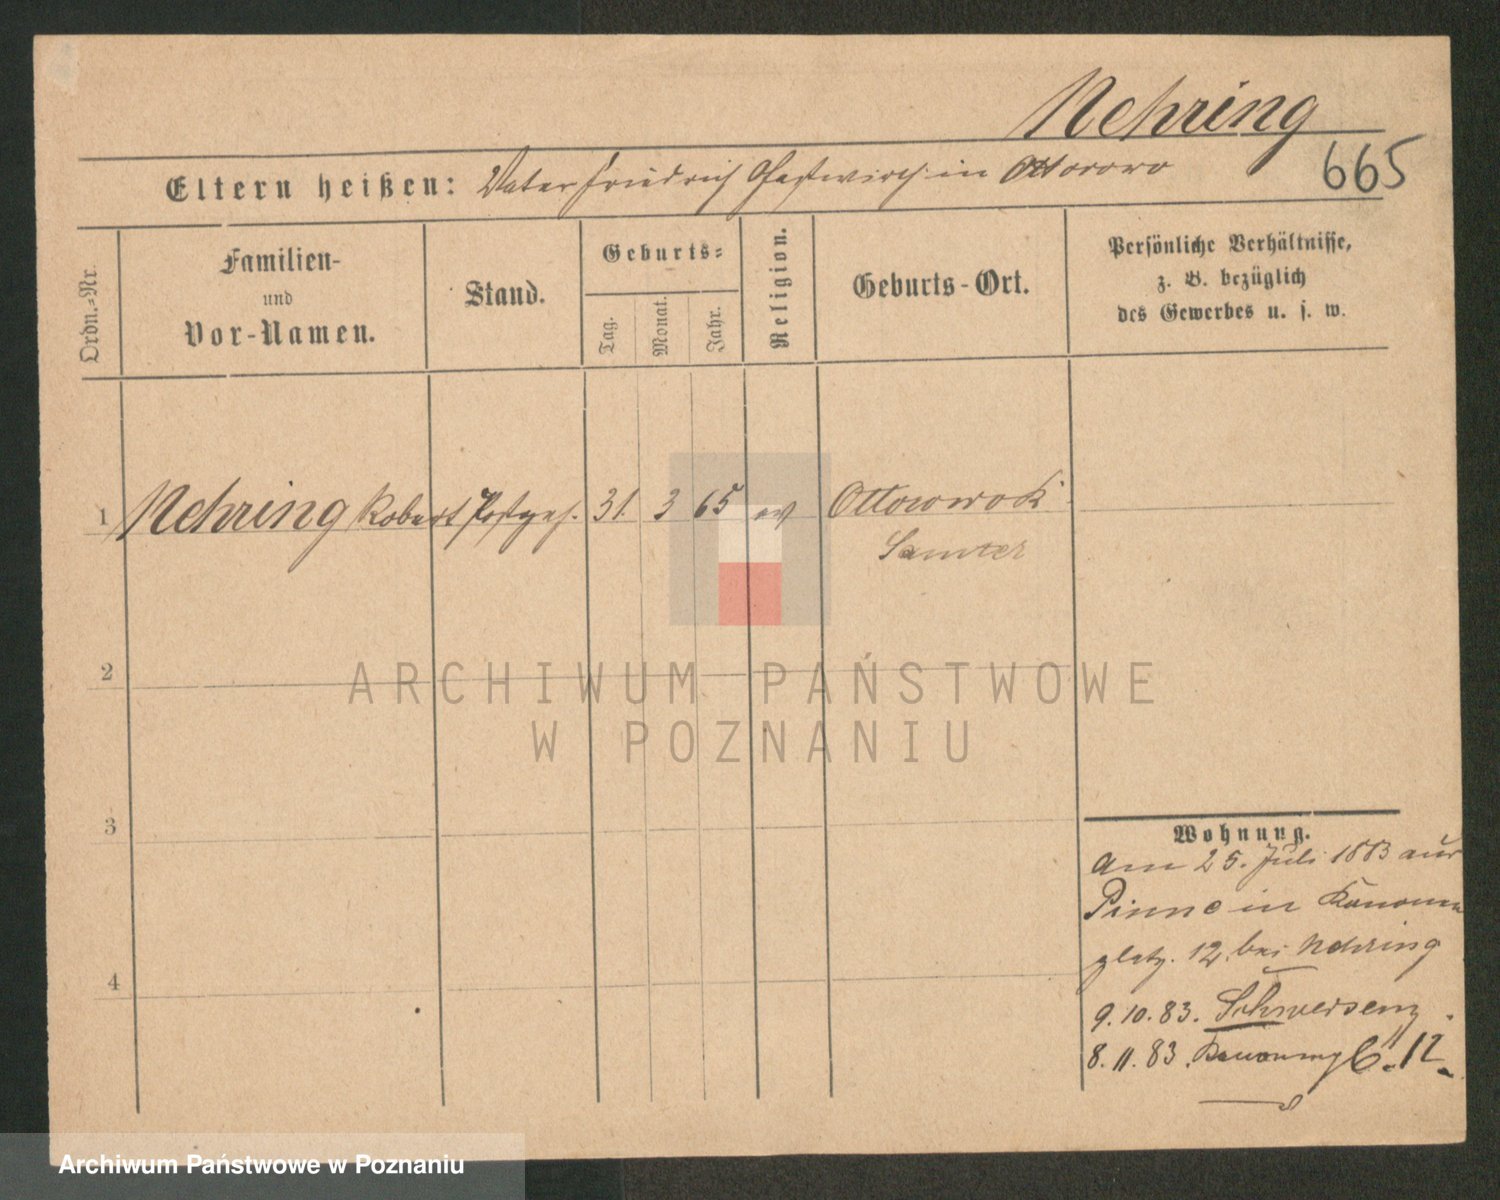 Nehring
665
Eltern heißen: Vater Friedrich Gastwirth in Ottorowo
Ordn.-Nr.
Familien-
und
Vor-Namen.
Stand.
Geburts-
Tag.
Monat.
Jahr.
Religion.
Geburts-Ort.
Persönliche Verhältnisse,
z. B. bezüglich
des Gewerbes u. s. w.
1 Nehring Robert Postgeh. 31 3 65 ev Ottorowo K
Samter
2
3
4
Wohnung.
Am 25. Juli 1883 aus
Pinne in Kanonen
platz. 12. bei Nehring
9.10.83. Schwersenz.
8.11.83. 6.12.
ARCHIWUM PAŃSTWOWE
W POZNANIU
Archiwum Państwowe w Poznaniu